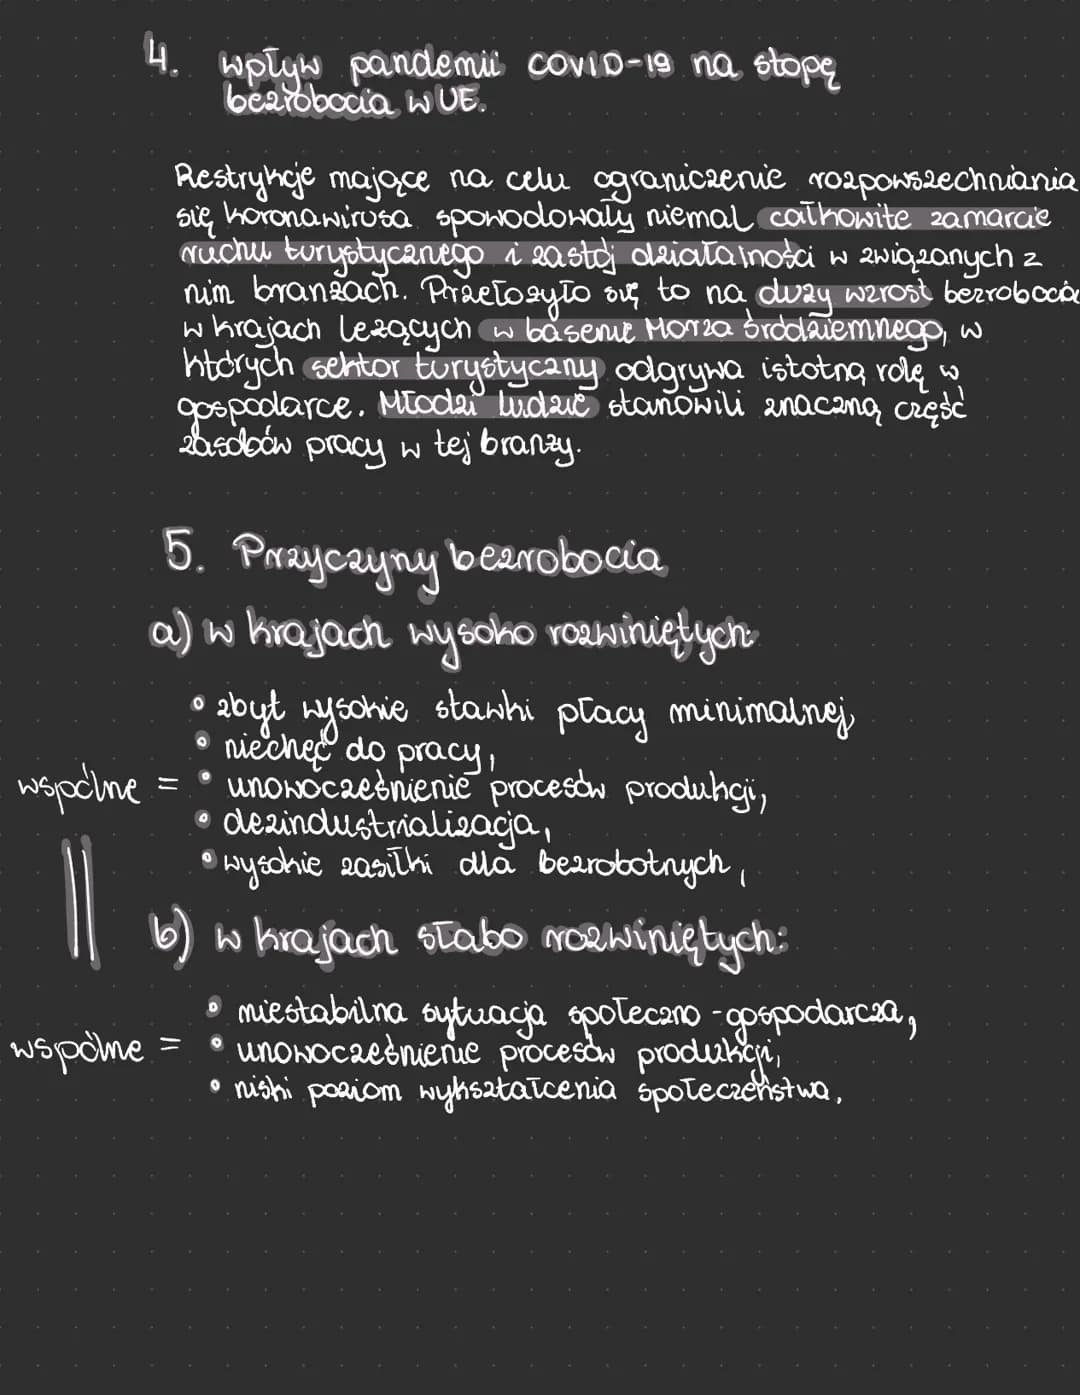 4. wpływ pandemii COVID-19 na stopę
bezrobocia w UE.
Restrykcje mające na celu ograniczenie rozpowszechniania
się koronawirusa spowodowały niemal całkowite zamarcie
ruchu turystycznego i zastój działalności w związanych z
nim branżach. Przełożyło się to na duży wzrost bezrobocia
w krajach leżących w basenie Morza Śródziemnego, w
których sektor turystyczny odgrywa istotną rolę w
gospodarce. Młodzi ludzie stanowili znaczną część
zasobów pracy w tej branży.
5. Przyczyny bezrobocia
a) w krajach wysoko rozwiniętych:
• zbyt wysokie stawki płacy minimalnej,
• niechęć do pracy,
wspólne = • unowocześnienie procesów produkcji,
• dezindustrializacja,
• wysokie zasiłki dla bezrobotnych,
b) w krajach słabo rozwiniętych:
• niestabilna sytuacja społeczno-gospodarcza,
wspólne = • unowocześnienie procesów produkcji,
• niski poziom wykształcenia społeczeństwa,